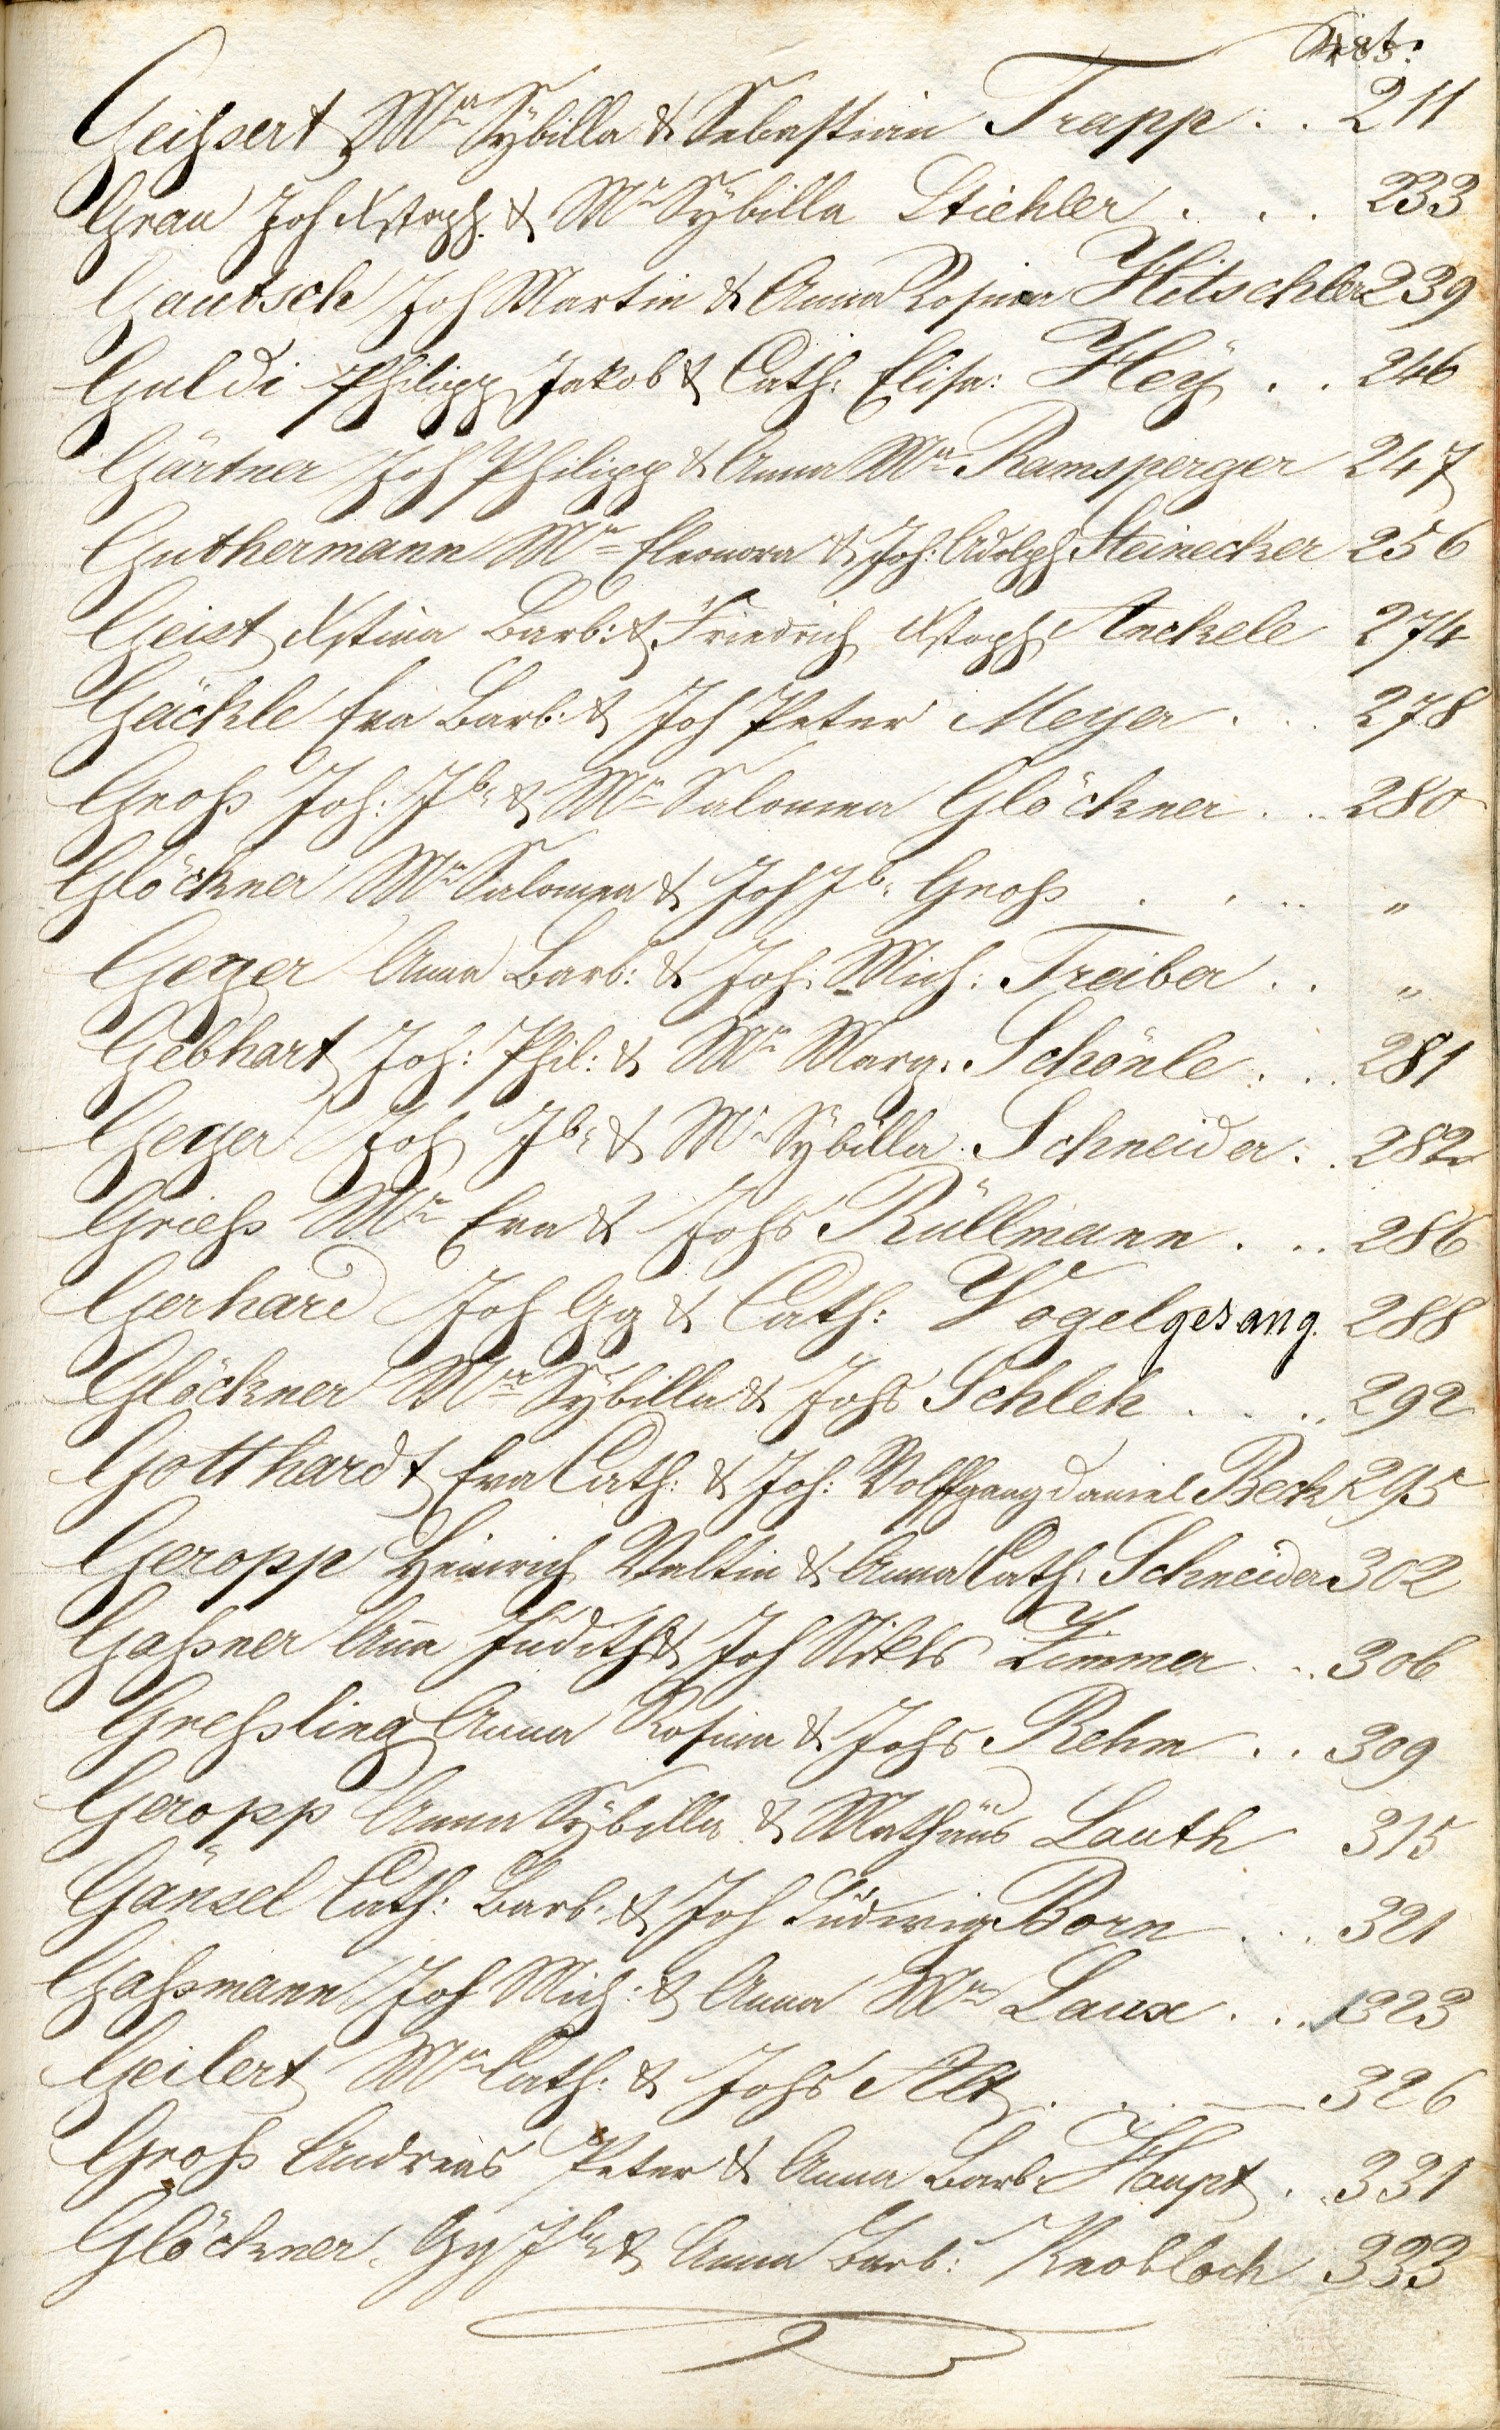 Geihsert Mra Sÿbilla & Sebastian Trapp . . 211
Grau Joh Xstoph. & Mra Sÿbilla Stiehler . . . 233
Gautsch Joh Martin & Anna Rosina Hitschler 239
Guldi Philipp Jakob & Cath: Elisa: Heÿ . . 246
Gärtner Joh Philipp & Anna Mra Ramsperger 247
Guthermann Mra Eleonora & Joh: Adolph Steinecker 256
Geist Xstina Barb: & Friedrich Xstoph Anckele 274
Gäckle Eva Barb: & Joh Peter Meyer . . . 278
Groß Joh: Jb. & Mra Salomea Glöckner . . . 280
Glöckner Mra Salomea & Joh Jb. Groß . . . . "
Geyer Anna Barb: & Joh: Mich: Treiber . . "
Gebhart Joh: Phil: & Mra Marg. Schönle . . . 281
Geyer Joh Jb. & Mra Sÿbilla Schneider . . 282
Grieß Mra Eva & Johs Rüllmann . . . 286
Gerhard Joh Gg & Cath: Vogelgesang. 288
Glöckner Mra Sÿbilla & Johs Schleh . . . . 292
Gotthardt Eva Cath: & Joh: Wolffgang daniel Beck 295
Geropp Heinrich Valtin & Anna Cath. Schneider 302
Gaßner Aña Judith & Joh Nikls Zimmer . . . 306
Greßling Anna Rosina & Johs Rehm . . 309
Geropp Anna Sÿbilla & Mathäus Lauth 315
Gänsel Cath: Barb: & Joh Ludwig Born . . . 321
Gaßmann Joh Mich: & Anna Mra Laux . . . 323
Geilert Mra Cath: & Johs Alt . . . 326
Groß Andreas Peter & Anna Barb: Haupt . . 331
Glöckner Gg Jb. & Anna Barb: Knobloch 333